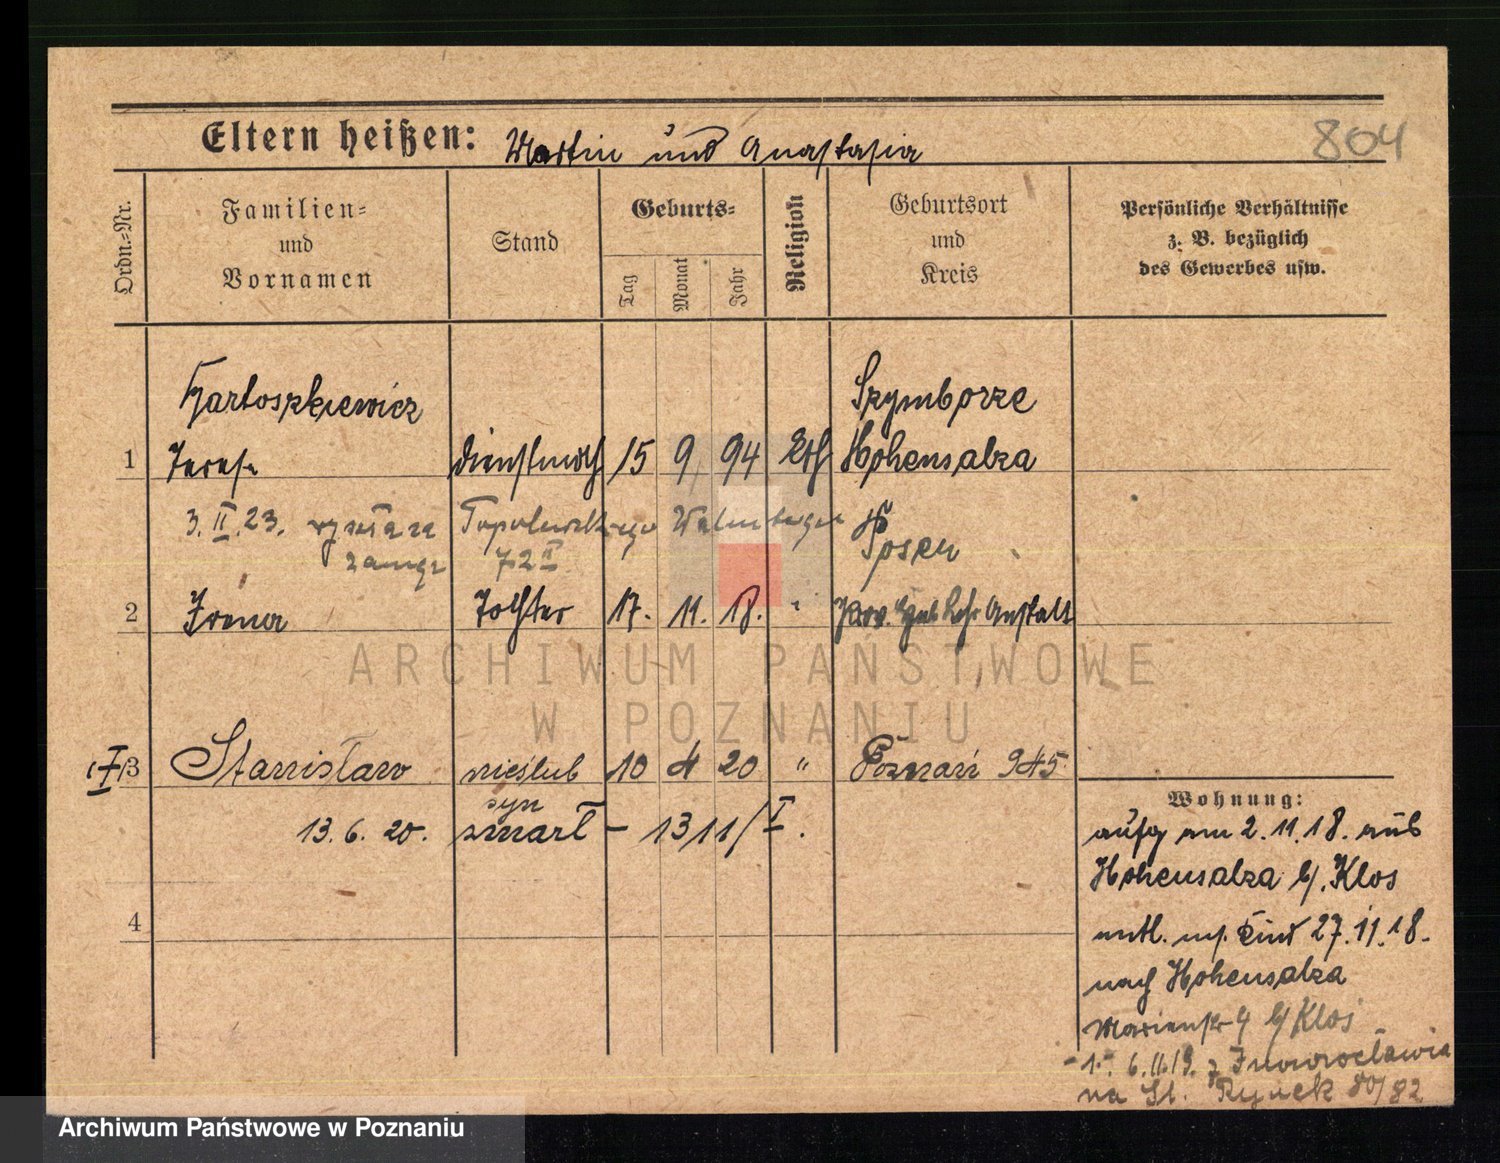 Eltern heißen: Martin und Anastasia
804
Ordn.-Nr.
Familien-
und
Vornamen
Stand
Geburts-
Tag
Monat
Jahr
Religion
Geburtsort
und
Kreis
Persönliche Verhältnisse
z. B. bezüglich
des Gewerbes usw.
Bartoszkiewicz
Szymborze
1 Teresa Dienstmdch 15 9 94 kth Hohensalza
3. II. 23.
72 II
Posen
2 Irena Tochter 17. 11. 18. " Prov. Heb. Lehr Anstalt
ARCHIWUM PAŃSTWOWE
W POZNANIU
3 Stanisław nieslub 10 4 20 " Poznań 945
syn
13. 6. 20. zmarł – 1311/I.
4
Wohnung:
aufg am 2.11.18. aus
Hohensalza b/. Klos
entl. m. Kind 27.11.18.
nach Hohensalza
Marienstr 4 b/ Klos
6.11.19. z Inowrocławia
na St. Rynek 80/82
Archiwum Państwowe w Poznaniu